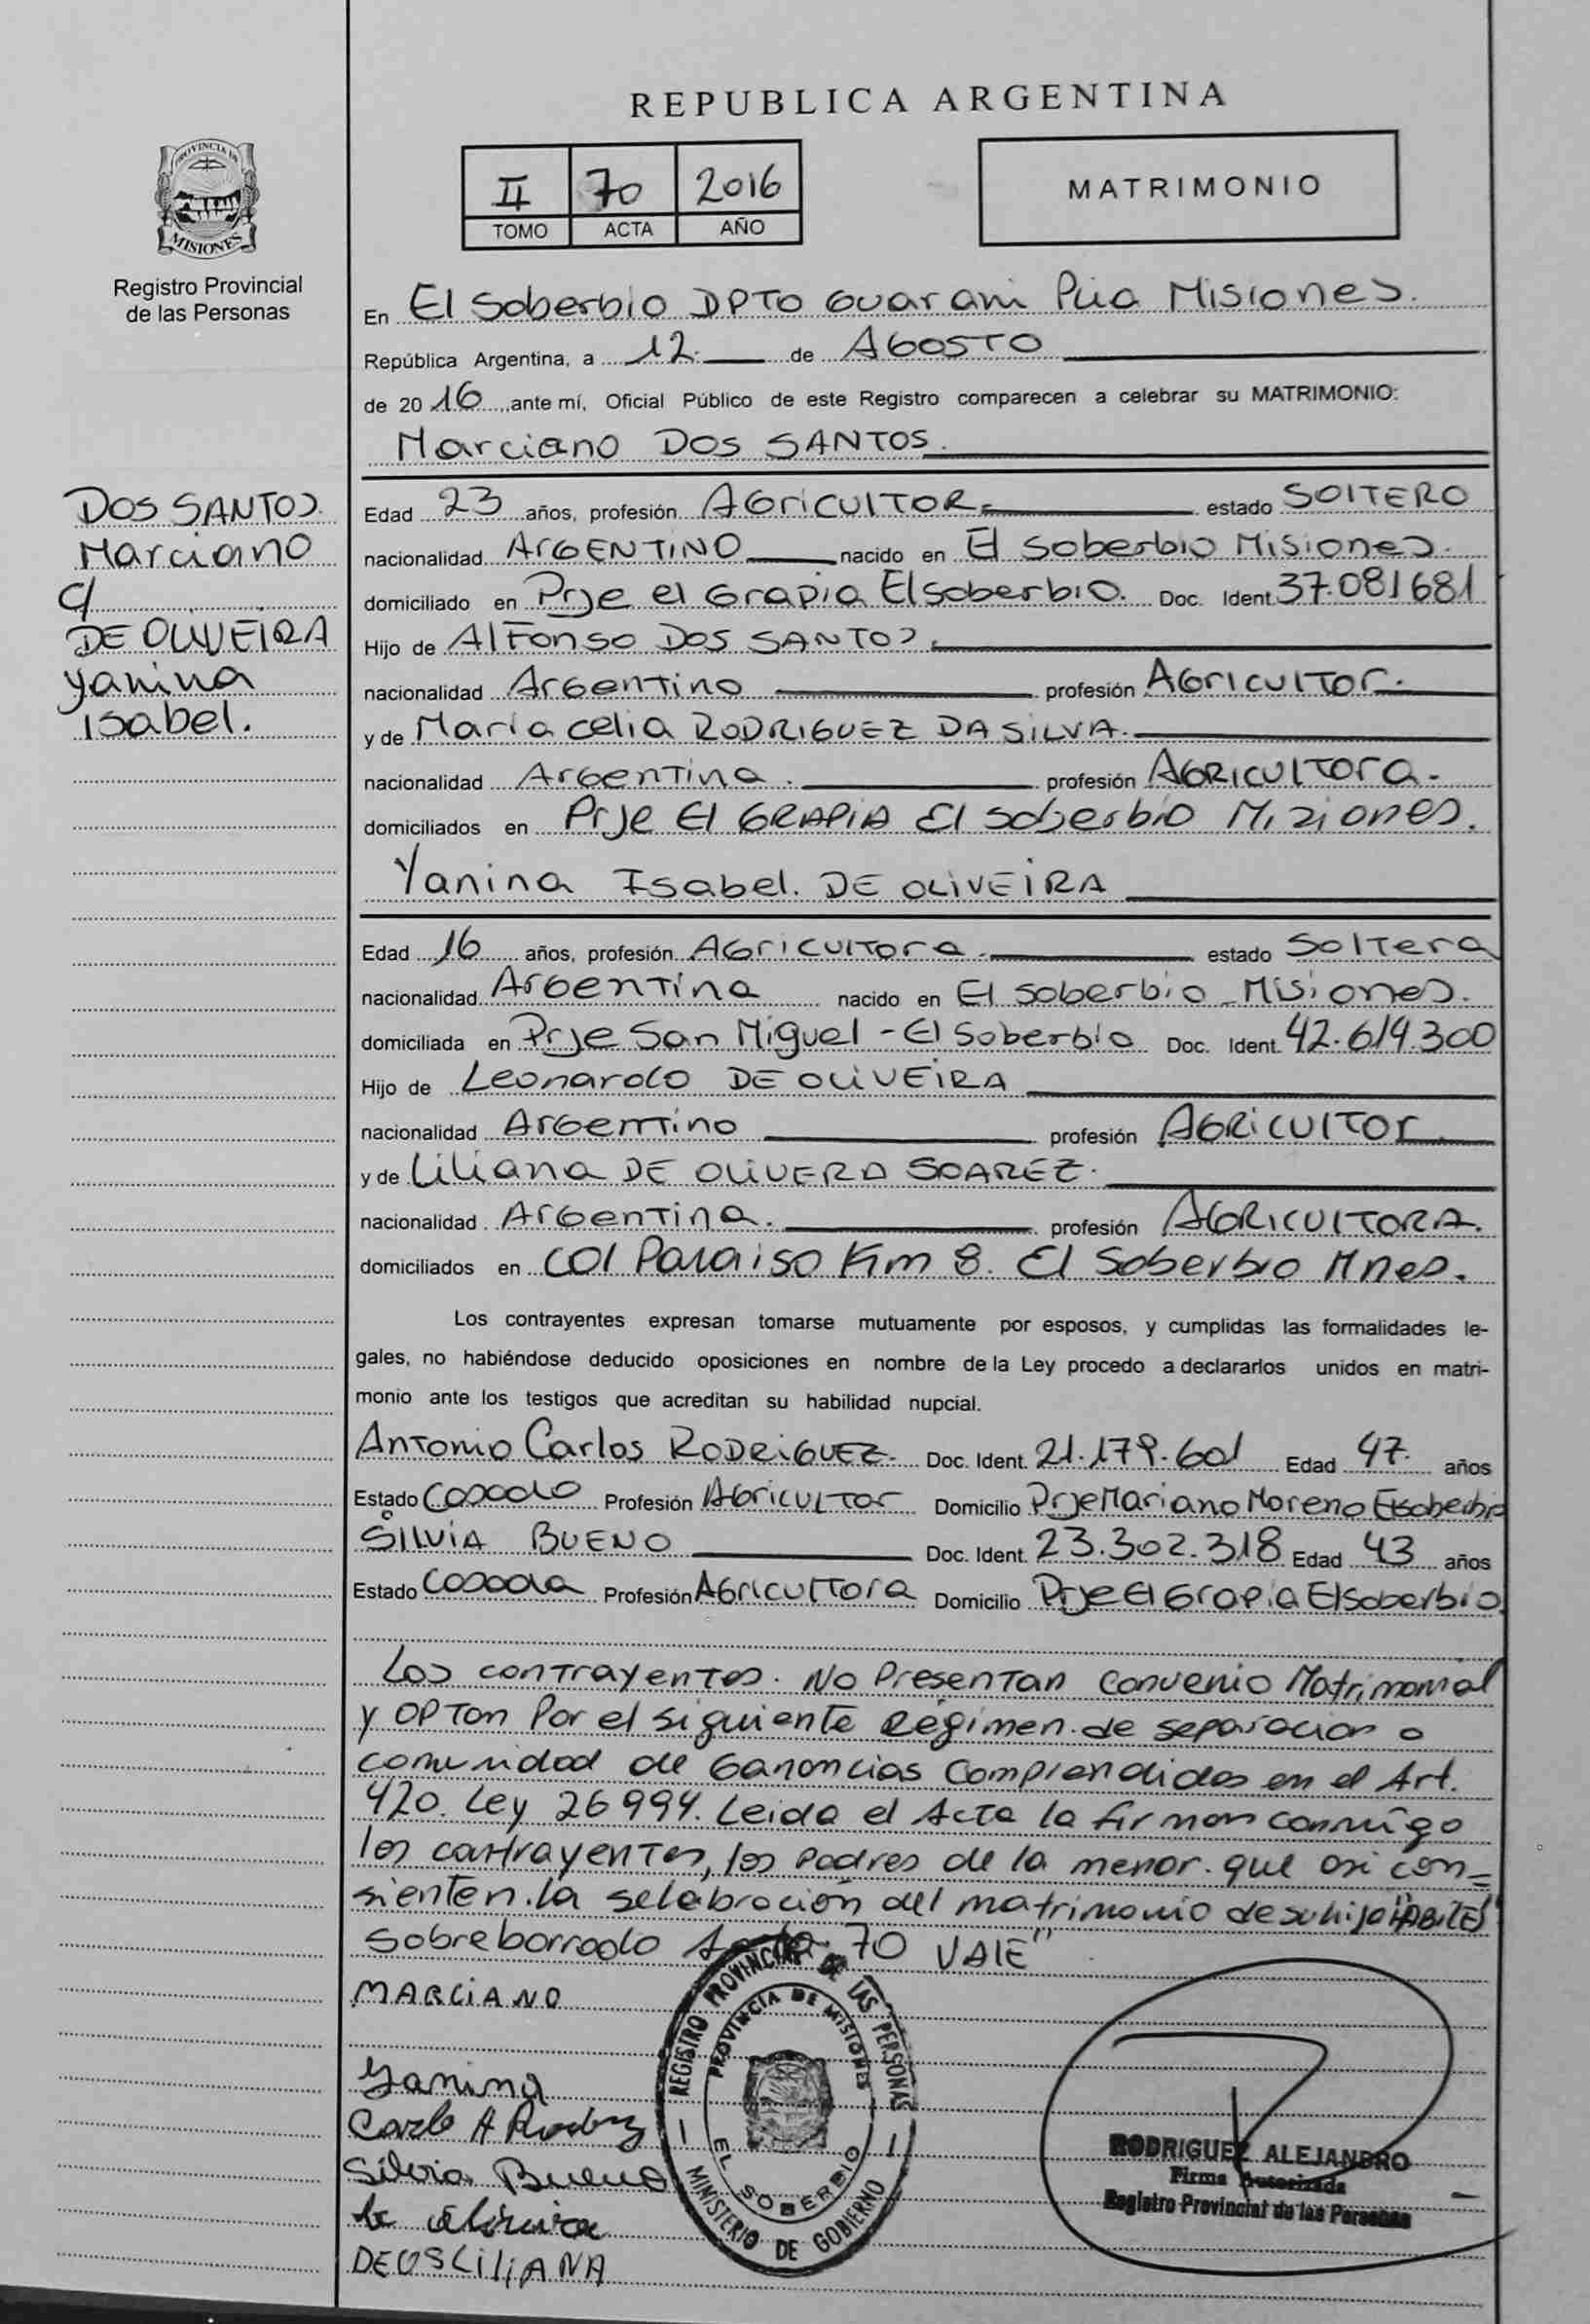 REPUBLICA ARGENTINA
II 70 2016
TOMO ACTA AÑO
MATRIMONIO
PROVINCIA DE
MISIONES
Registro Provincial
de las Personas
DOS SANTOS
Marciano
c/
DE OLIVEIRA
Yanina
Isabel.
En El Soberbio DPTO Guarani Pcia Misiones.
República Argentina, a 12 de AGOSTO
de 2016, ante mí, Oficial Público de este Registro comparecen a celebrar su MATRIMONIO:
Marciano DOS SANTOS.
Edad 23 años, profesión AGricULTOR estado SOLTERO
nacionalidad ArGENTINO nacido en El Soberbio Misiones.
domiciliado en Prje el Grapia El Soberbio. Doc. Ident. 37.081681
Hijo de AlFonso DOS SANTOS.
nacionalidad Argentino profesión AGricultor.
y de Maria Celia RODRIGUEZ DA SILVA.
nacionalidad Argentina. profesión AGRICULTora.
domiciliados en Prje El GRAPIA El Soberbio Misiones.
Yanina Isabel. DE OLIVEIRA
Edad 16 años, profesión AGricultora. estado Soltera
nacionalidad Argentina nacido en El Soberbio Misiones.
domiciliada en Prje San Miguel - El Soberbio Doc. Ident. 42.614.300
Hijo de Leonardo DE OLIVEIRA
nacionalidad Argentino profesión AGRICULTOR
y de Liliana DE OLIVERA SOAREZ.
nacionalidad Argentina. profesión AGRICULTORA.
domiciliados en Col Paraiso Km 8. El Soberbio Mnes.
Los contrayentes expresan tomarse mutuamente por esposos, y cumplidas las formalidades le-
gales, no habiéndose deducido oposiciones en nombre de la Ley procedo a declararlos unidos en matri-
monio ante los testigos que acreditan su habilidad nupcial.
Antonio Carlos RODRIGUEZ. Doc. Ident. 21.179.601 Edad 47 años
Estado Casado Profesión AGRICULTOR Domicilio Prje Mariano Moreno El Soberbio
SILVIA BUENO Doc. Ident. 23.302.318 Edad 43 años
Estado Casada Profesión AGRICULTORA Domicilio Prje El Grapia El Soberbio.
Los contrayentes. No Presentan Convenio Matrimonial
y OPTan Por el siguiente Régimen de separacion o
comunidad de Ganancias Comprendidas en el Art.
420. Ley 26994. Leida el Acta la firman conmigo
los contrayentes, los Padres de la menor. que asi con-
sienten. la selebración del matrimonio de su hija "HABILES"
Sobreborrado Acta 70 VALE"
MARCIANO
Yanina
Silvia Bueno
DEOSLILIANA
REGISTRO PROVINCIAL DE LAS PERSONAS
PROVINCIA DE MISIONES
EL SOBERBIO
MINISTERIO DE GOBIERNO
RODRIGUEZ ALEJANDRO
Firma Autorizada
Registro Provincial de las Personas